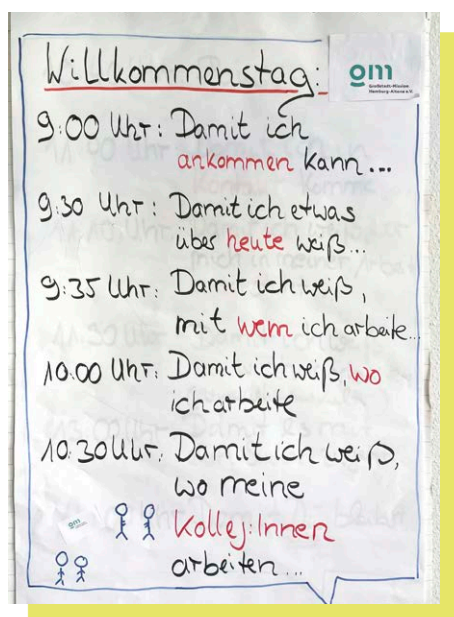 Willkommenstag:
gm
Großstadt-Mission
Hamburg-Altona e.V.
9:00 Uhr: Damit ich
ankommen kann...
9:30 Uhr: Damit ich etwas
über heute weiß...
9:35 Uhr: Damit ich weiß,
mit wem ich arbeite...
10:00 Uhr: Damit ich weiß, wo
ich arbeite
10:30 Uhr: Damit ich weiß,
wo meine
Kolleg:Innen
arbeiten...
gm